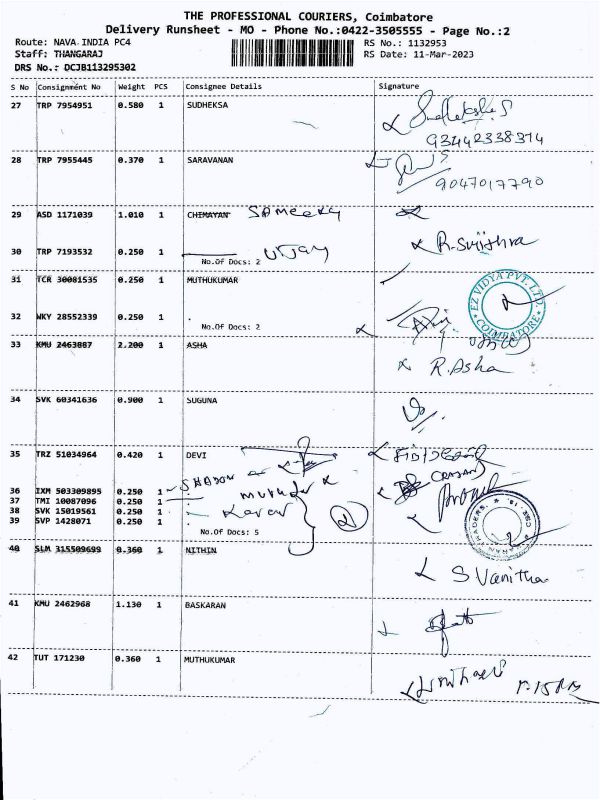 THE PROFESSIONAL COURIERS, Coimbatore
Delivery Runsheet - MO - Phone No.:0422-3505555 - Page No.:2
Route: NAVA INDIA PC4 RS No.: 1132953
Staff: THANGARAJ RS Date: 11-Mar-2023
DRS No.: DCJB113295302
S No Consignment No Weight PCS Consignee Details Signature
27 TRP 7954951 0.580 1 SUDHEKSA
93442338374
28 TRP 7955445 0.370 1 SARAVANAN
9047017790
29 ASD 1171039 1.010 1 CHIMAYAN
30 TRP 7193532 0.250 1 Vijay R.Sujithra
No.Of Docs: 2
31 TCR 30081535 0.250 1 MUTHUKUMAR
EZ VIDYA PVT. LTD. COIMBATORE
32 WKY 28552339 0.250 1 .
No.Of Docs: 2
33 KMU 2463087 2.200 1 ASHA
R.Asha
34 SVK 60341636 0.900 1 SUGUNA
35 TRZ 51034964 0.420 1 DEVI
36 IXM 503309895 0.250 1
37 TMI 10087096 0.250 1
38 SVK 15019561 0.250 1
39 SVP 1428071 0.250 1
No.Of Docs: 5
40 SLM 315509699 0.360 1 NITHIN
S Vanitha
41 KMU 2462968 1.130 1 BASKARAN
42 TUT 171230 0.360 1 MUTHUKUMAR